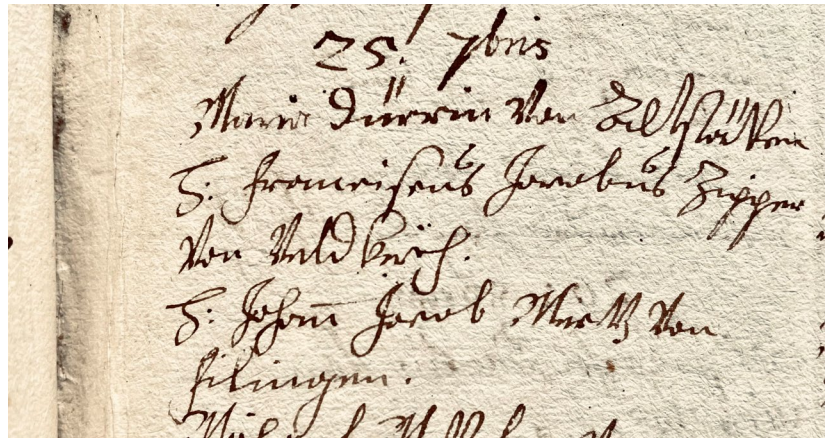 25. 7bris
Maria Dürrin Von Altstätten
H: Franciscus Jacobus Zipper
Von Veldkirch.
H: Joham̄ Jacob Mertz Von
Filingen.